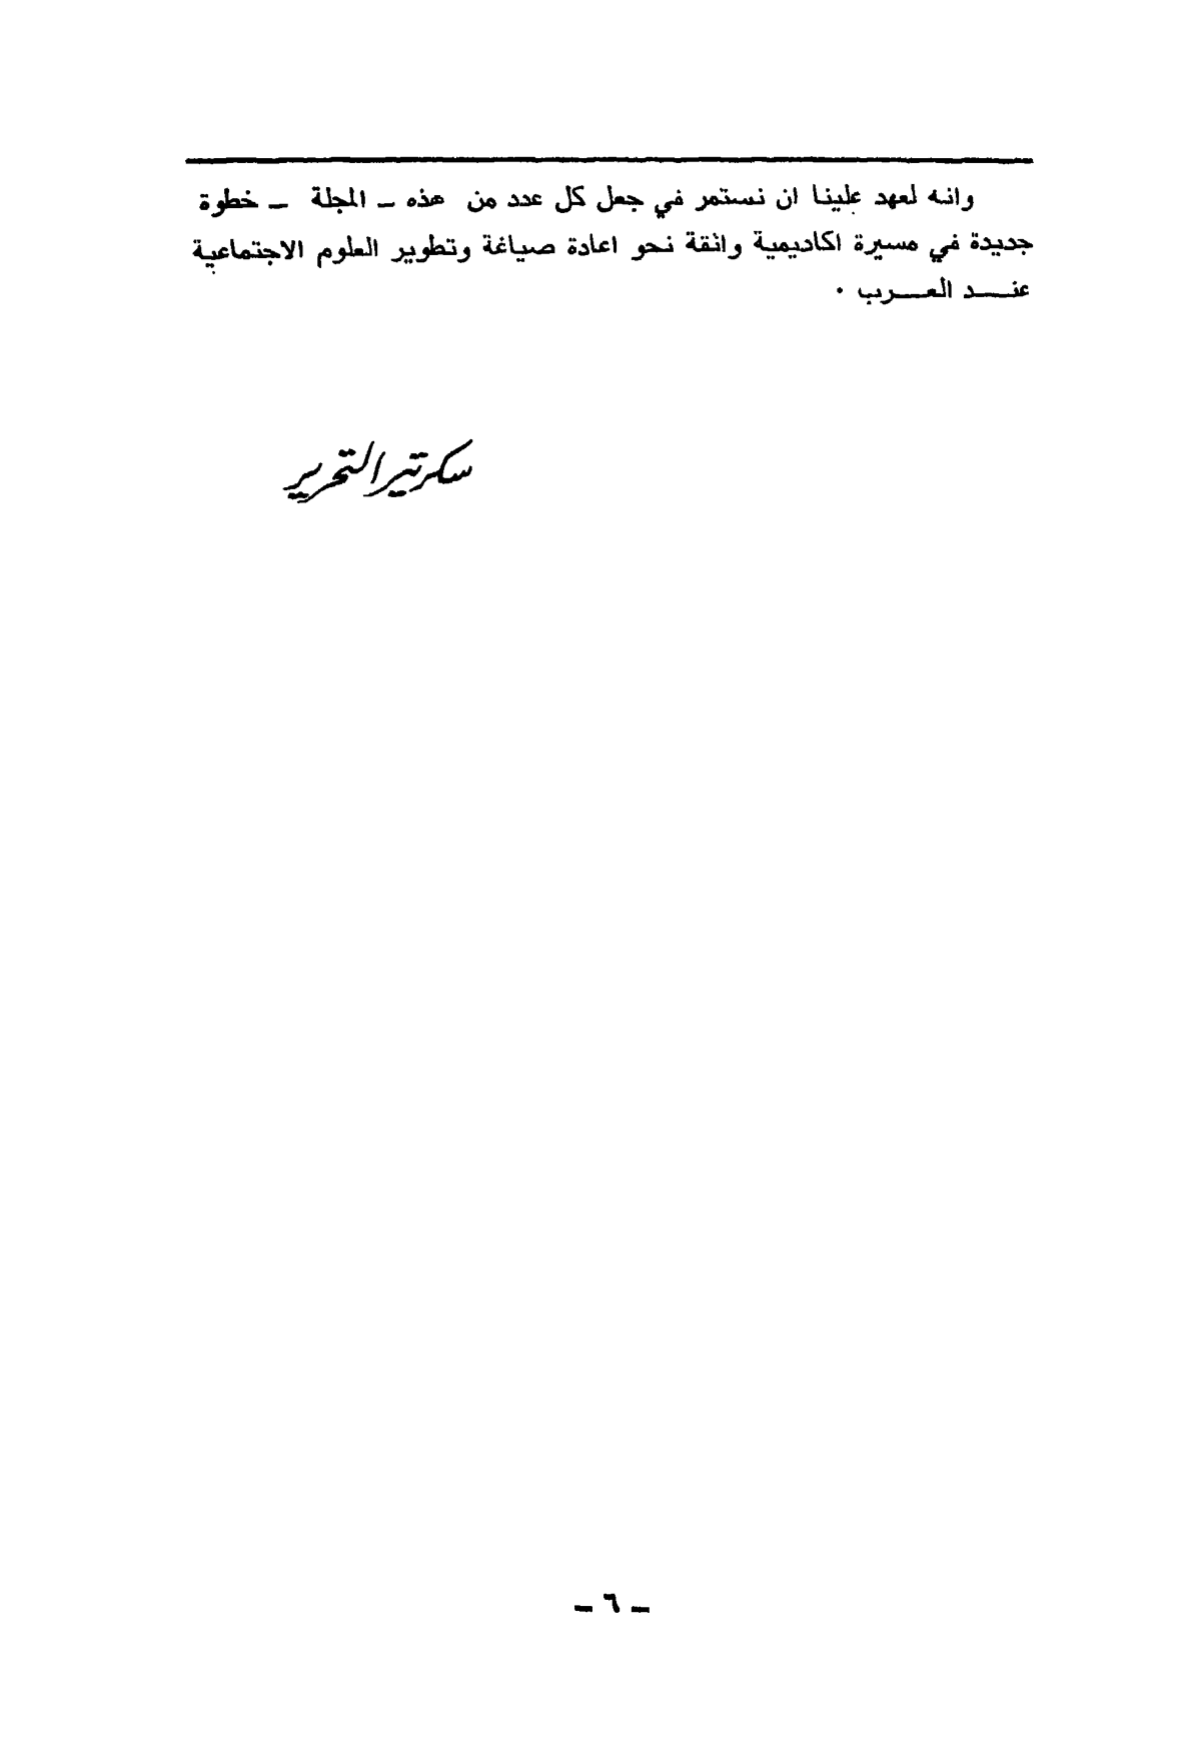 وانه لعهد علينا ان نستمر في جعل كل عدد من هذه ـ المجلة ـ خطوة
جديدة في مسيرة اكاديمية واثقة نحو اعادة صياغة وتطوير العلوم الاجتماعية
عنـــد العـــرب ٠
سكرتير التحرير
ـ ٦ ـ